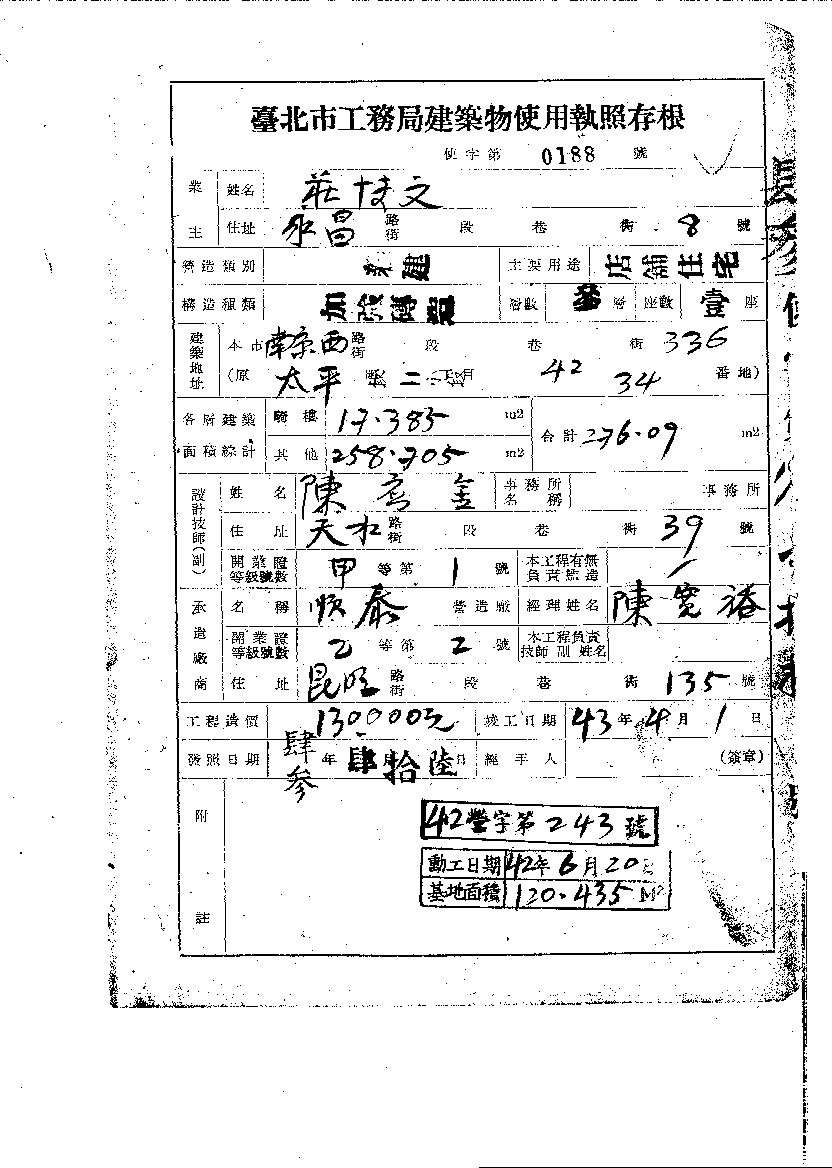 臺北市工務局建築物使用執照存根
使字第 0188 號
業主 姓名 莊 文
住址 永昌 路街 段 巷 街 8 號
營造類別 建 主要用途 店舖住宅
構造種類 加強磚造 層數 層 座數 壹 座
建築地址 本市 南京西 路街 段 巷 街 336
(原 太平 段 二 42 34 番地)
各層建築面積綜計 騎樓 17.385 m2 合計 276.09 m2
其他 258.705 m2
設計技師(副) 姓名 陳 金 事務所名稱 事務所
住址 天水 路街 段 巷 街 39 號
開業證等級號數 甲 等第 1 號 本工程有無負責監造
承造廠商 名稱 順泰 營造廠 經理姓名 陳寬裕
開業證等級號數 乙 等第 2 號 本工程負責技師副姓名
住址 昆明 路街 段 巷 街 135 號
工程造價 130000元 竣工日期 43年4月1日
發照日期 肆參 年 肆 月 拾陸 日 經手人 (簽章)
附註
42營字第243號
動工日期 42年6月20日
基地面積 120.435 M²